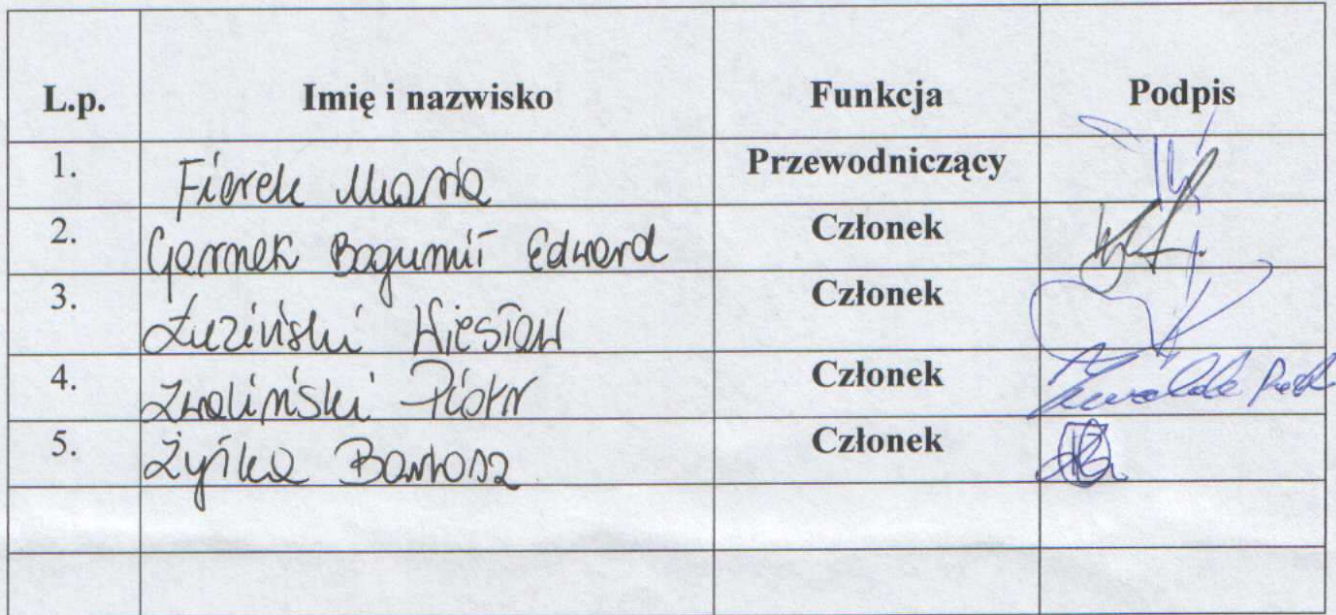 L.p. Imię i nazwisko Funkcja Podpis
1. Fierek Maria Przewodniczący
2. Garmek Bogumił Edward Członek
3. Wiesław Członek
4. Zwaliński Piotr Członek
5. Żyłka Bartosz Członek